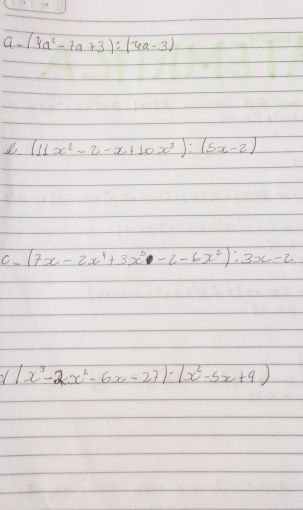 a- (4a² - 7a + 3) : (4a - 3)
b. (11x² - 2 - x + 10x³) : (5x - 2)
c- (7x - 2x⁴ + 3x⁵ - 2 - 6x²) : 3x - 2
d (x³ - 2x² - 6x - 27) : (x² - 5x + 9)